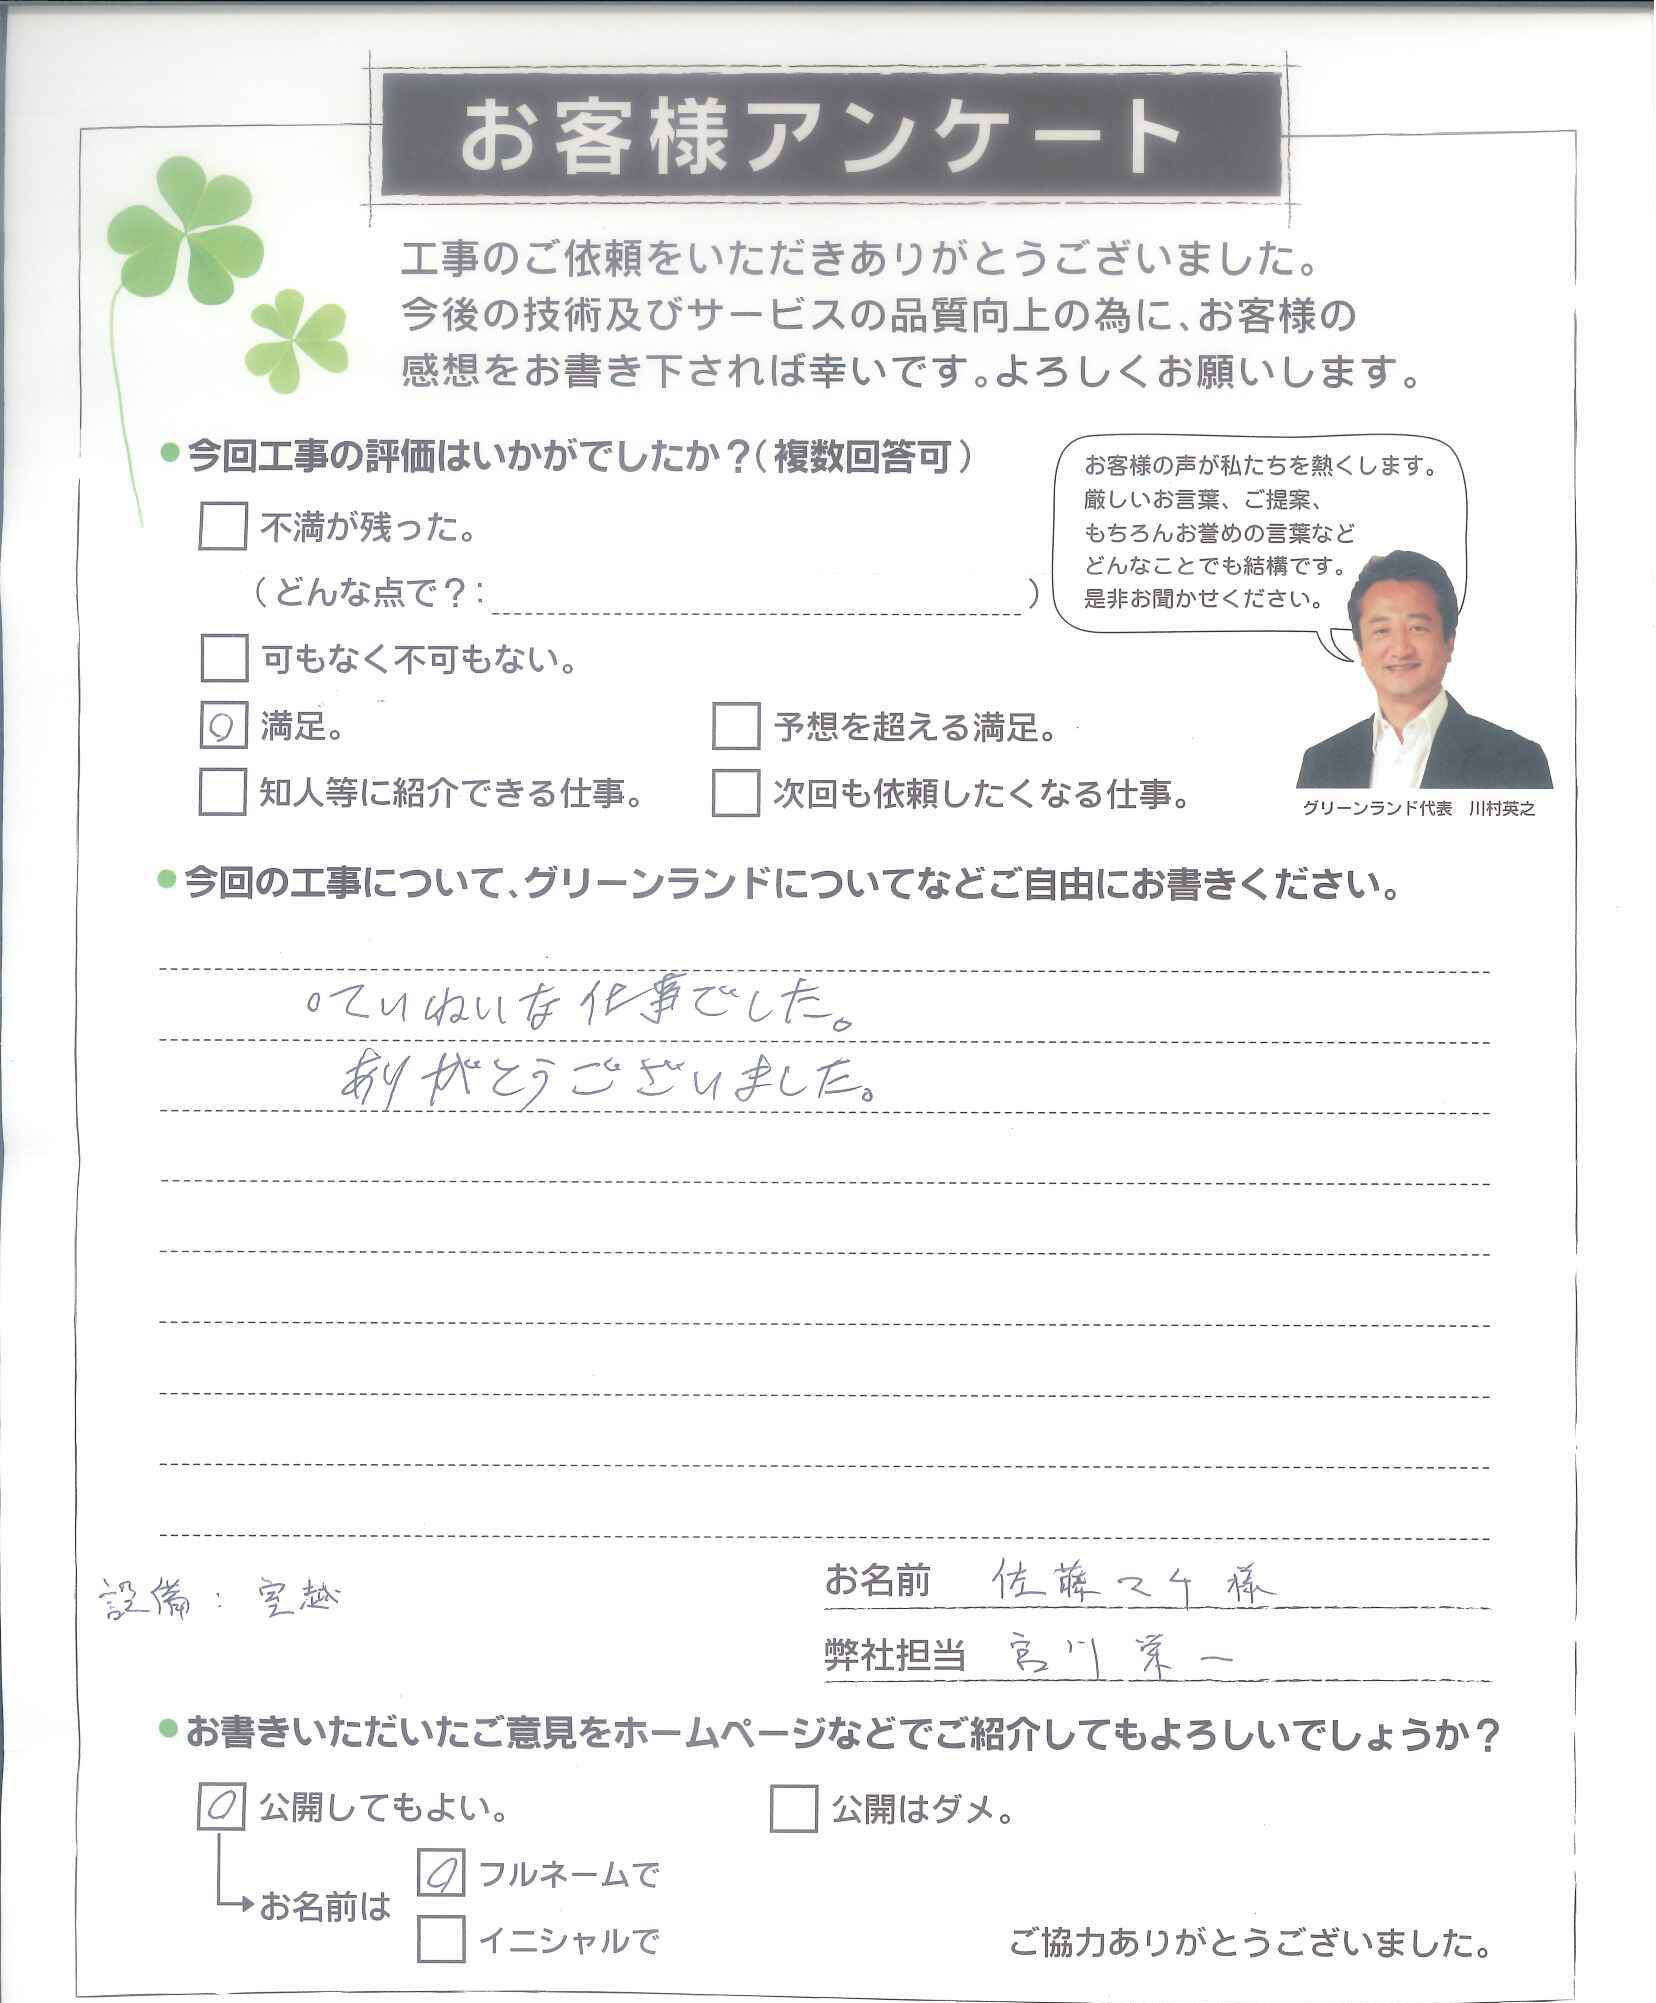 お客様アンケート
工事のご依頼をいただきありがとうございました。
今後の技術及びサービスの品質向上の為に、お客様の
感想をお書き下されば幸いです。よろしくお願いします。
●今回工事の評価はいかがでしたか？（複数回答可）
不満が残った。
（どんな点で？： ）
可もなく不可もない。
○ 満足。
予想を超える満足。
知人等に紹介できる仕事。
次回も依頼したくなる仕事。
お客様の声が私たちを熱くします。
厳しいお言葉、ご提案、
もちろんお誉めの言葉など
どんなことでも結構です。
是非お聞かせください。
グリーンランド代表　川村英之
●今回の工事について、グリーンランドについてなどご自由にお書きください。
○ていねいな仕事でした。
ありがとうございました。
設備：室越
お名前 佐藤マケ様
弊社担当 宮川栄一
●お書きいただいたご意見をホームページなどでご紹介してもよろしいでしょうか？
○ 公開してもよい。
公開はダメ。
お名前は
○ フルネームで
イニシャルで
ご協力ありがとうございました。